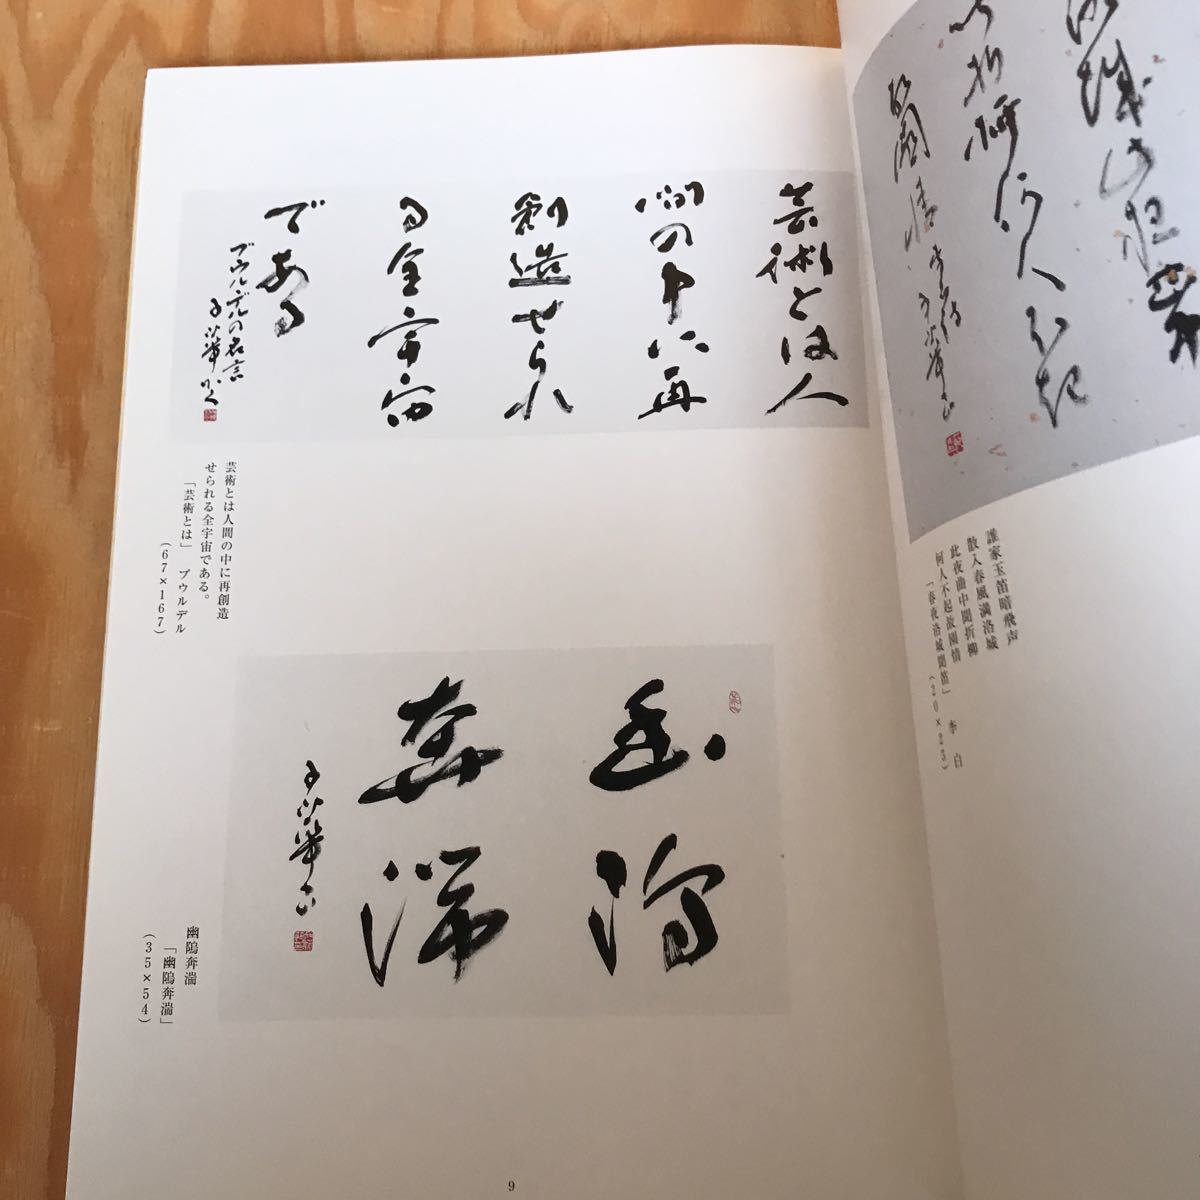 折柳何人不起
故園情
誰家玉笛暗飛声
散入春風満洛城
此夜曲中聞折柳
何人不起故園情
「春夜洛城聞笛」 李 白
(20×23)
芸術とは人
間の中に再
創造せられ
る全宇宙
である
ブウルデルの名言
芸術とは人間の中に再創造
せられる全宇宙である。
「芸術とは」 ブウルデル
(67×167)
幽隝
奔湍
幽隝奔湍
「幽隝奔湍」
(35×54)
9